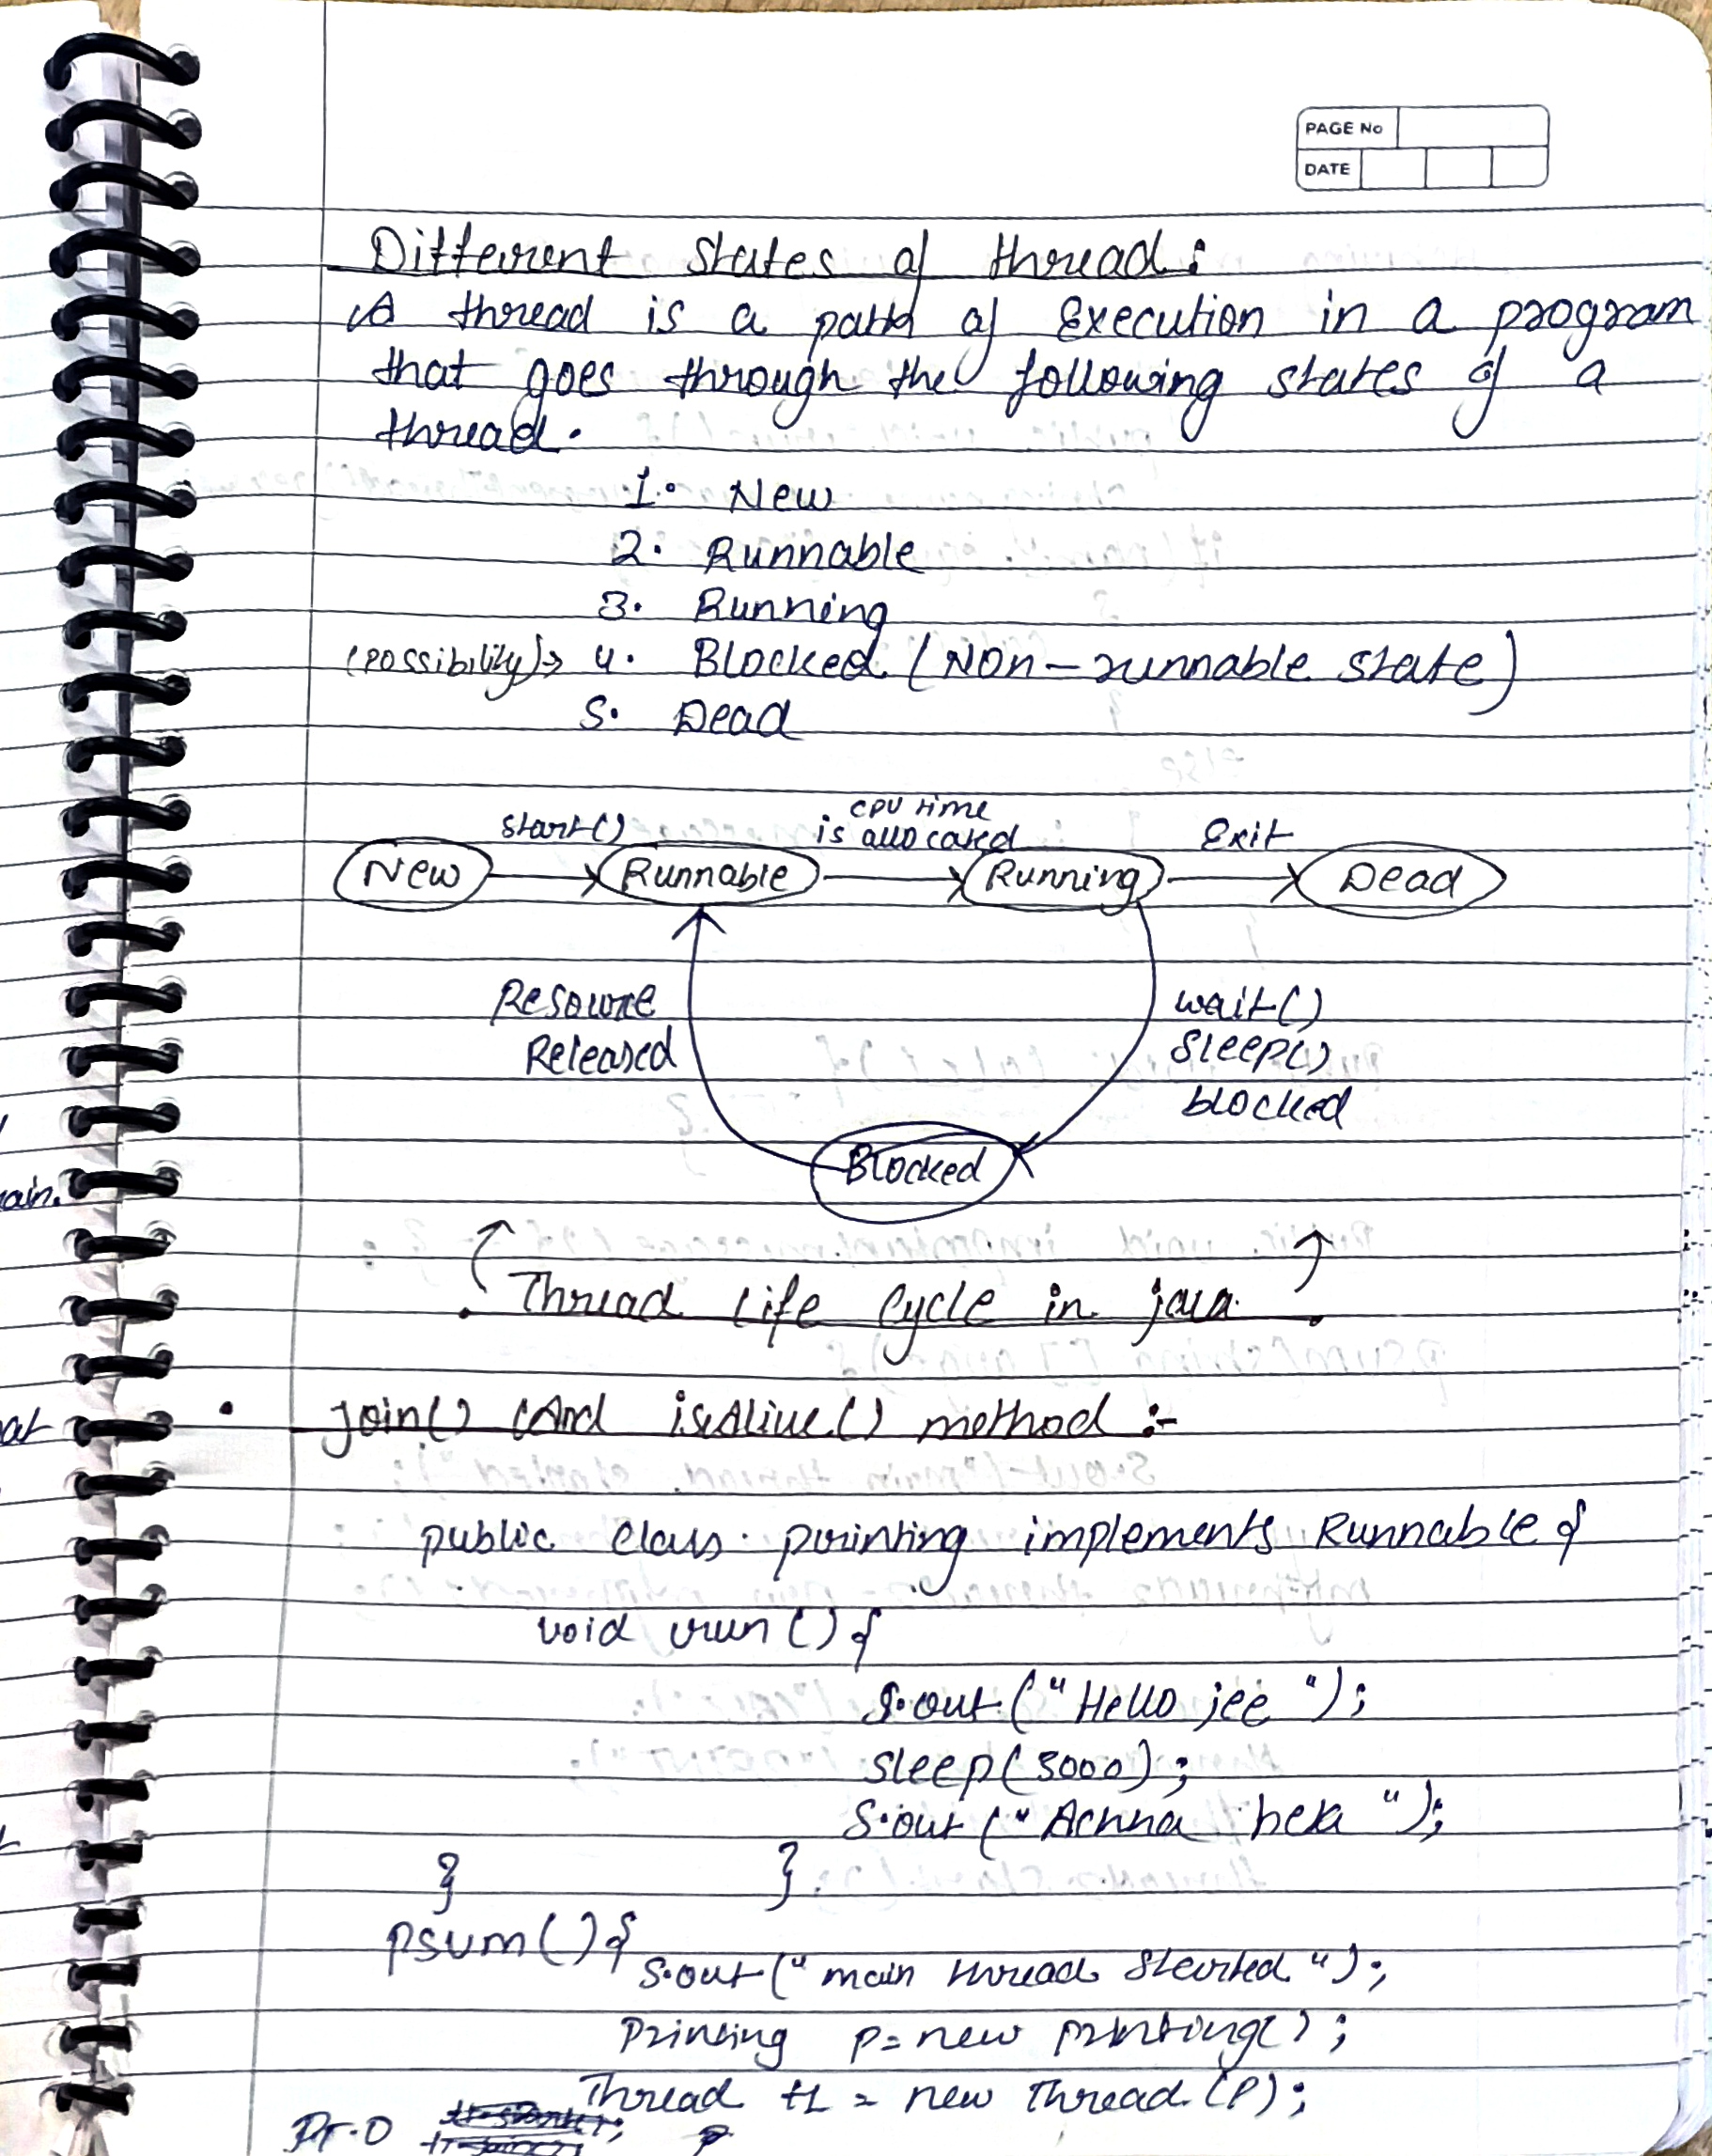 PAGE No
DATE
Different states of thread:
A thread is a path of Execution in a program
that goes through the following states of a
thread.
1. New
2. Runnable
3. Running
(possibility)→ 4. Blocked (NON-runnable state)
5. Dead
start() CPU time is allocated Exit
New Runnable Running Dead
Resource
Released
wait()
Sleep()
blocked
Blocked
Thread Life Cycle in java.
ain.
at
• join() And isAlive() method :-
public class printing implements Runnable {
void run () {
S.out ("Hello jee ");
sleep(3000);
S.out ("Achha beta ");
} }
psvm() {
S.out (" main thread started ");
Printing p = new printing();
Thread t1 = new Thread (P);
P.T.O